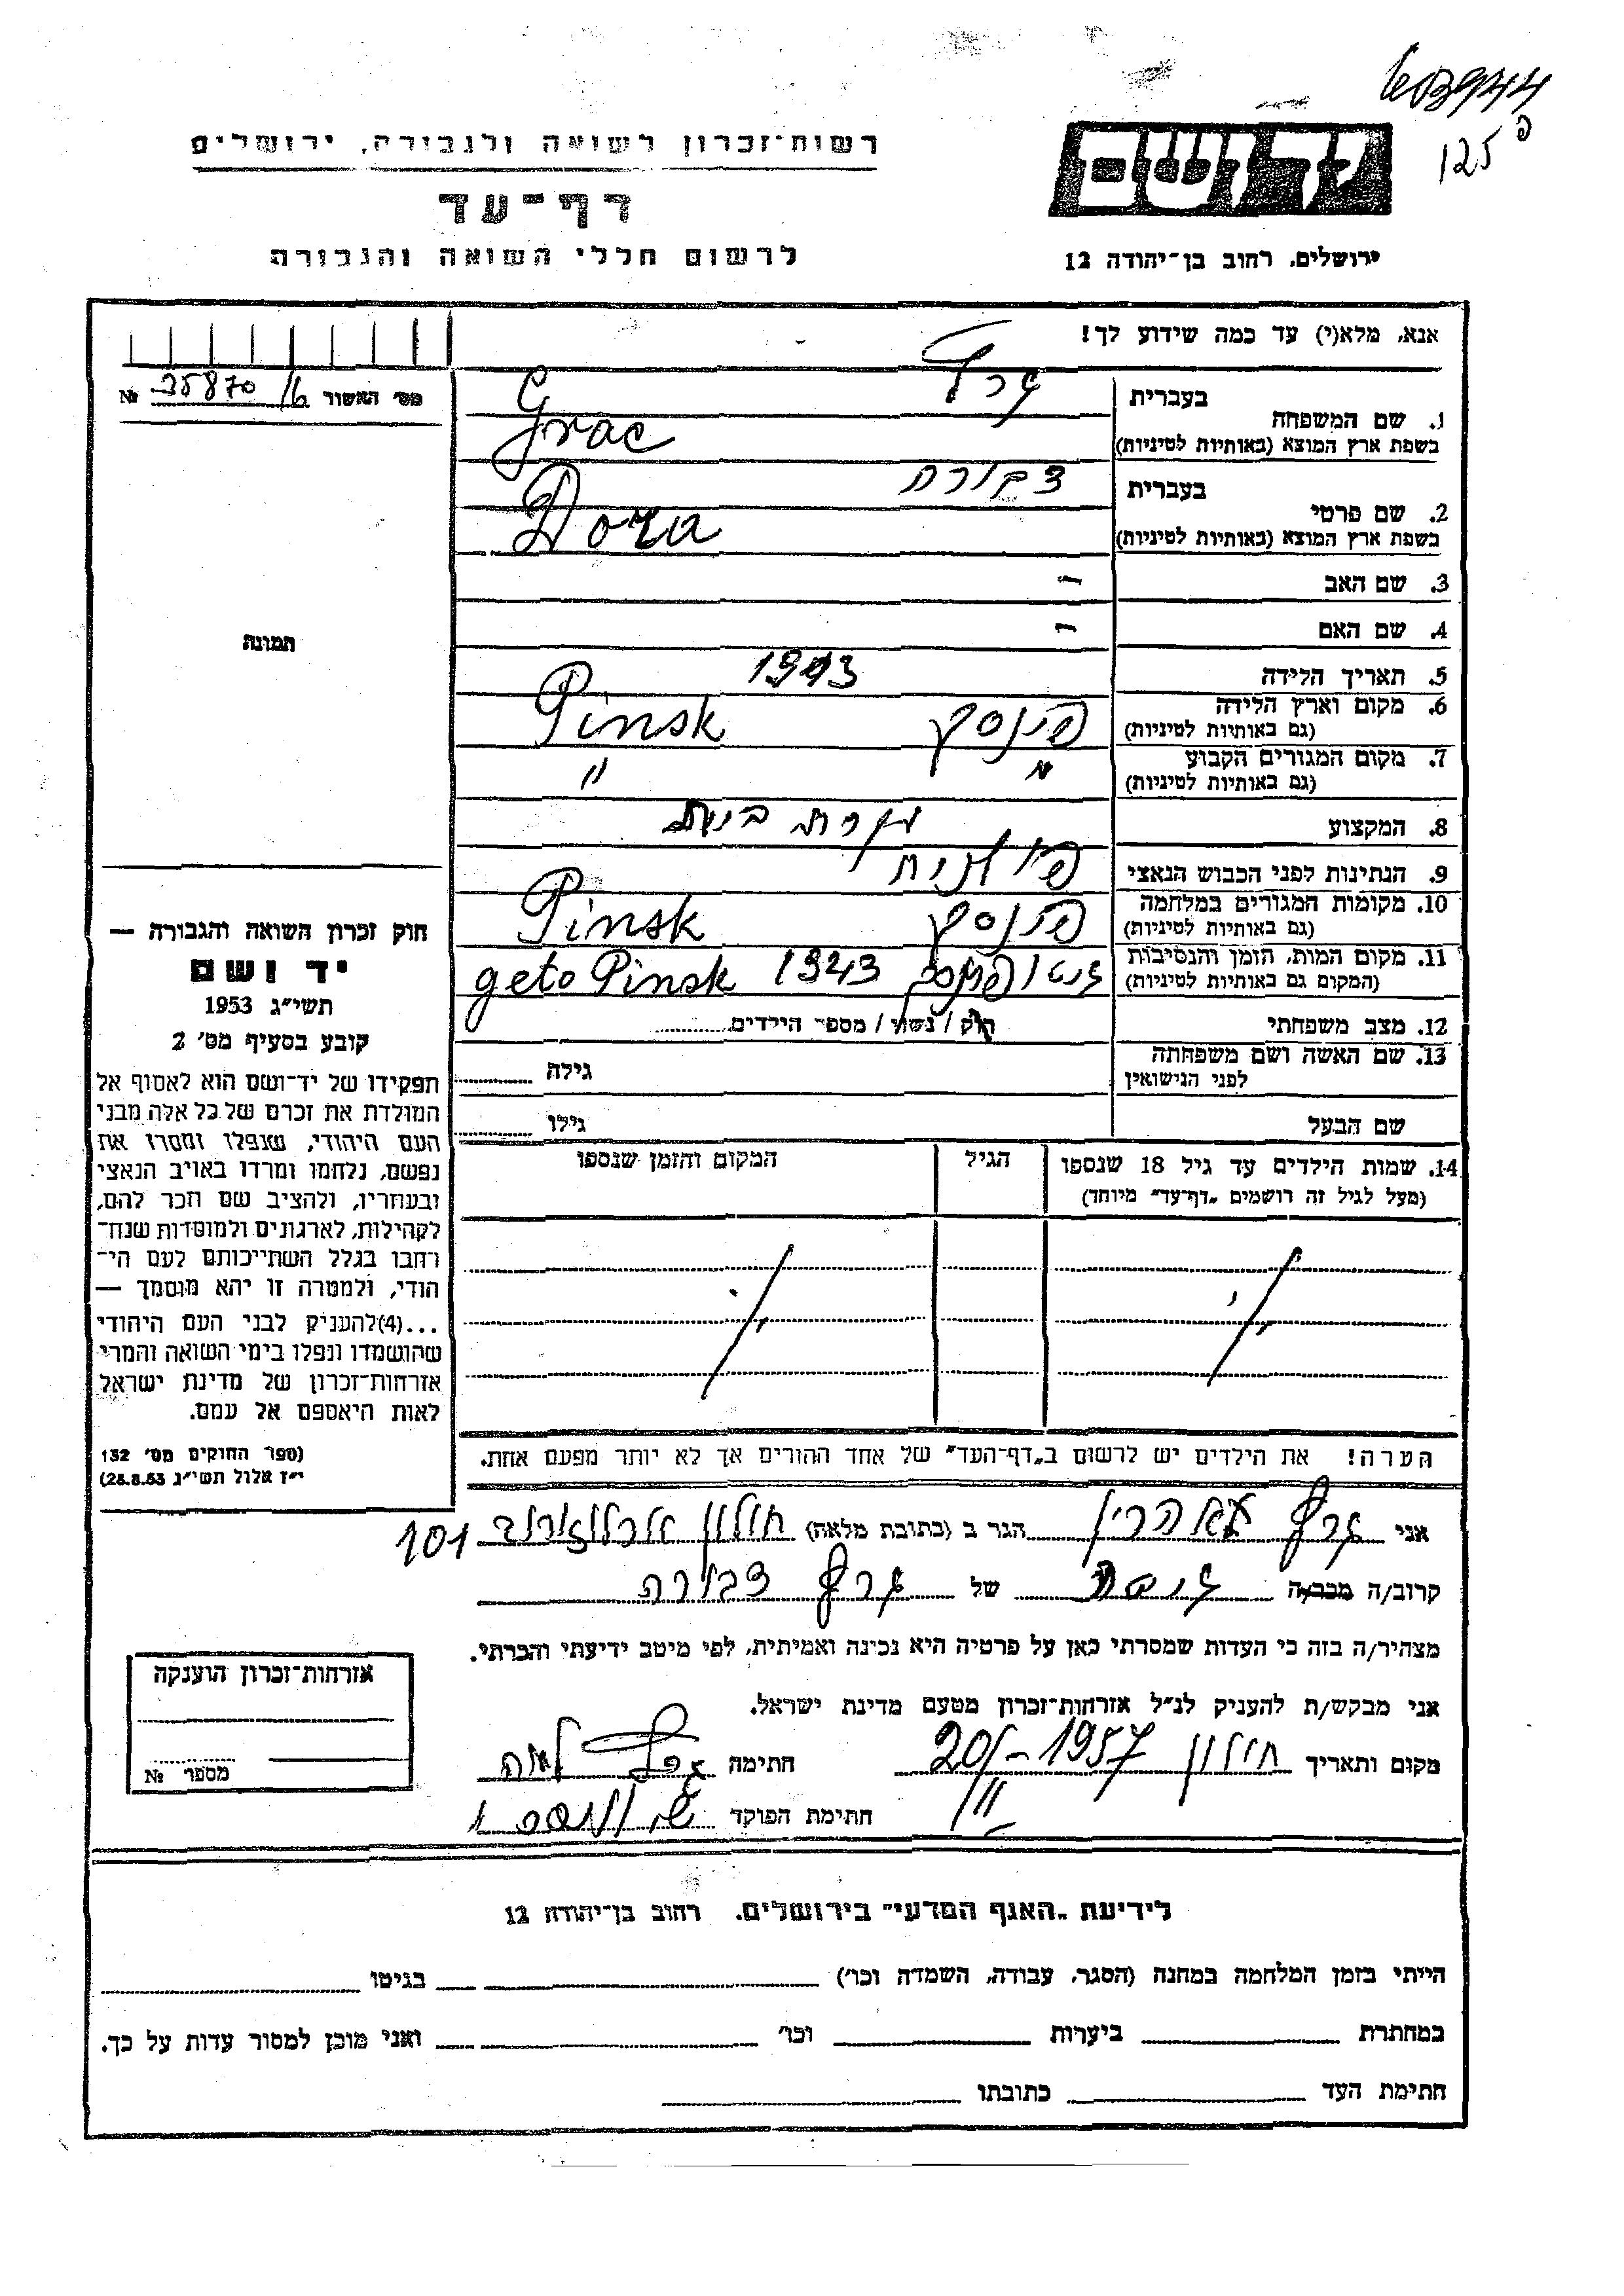 603944
פ
125
רשות־זכרון לשואה ולגבורה, ירושלים
דף־עד
לרשום חללי השואה והגבורה
יד ושם
ירושלים, רחוב בן־יהודה 12
אנא, מלא(י) עד כמה שידוע לך!
מס׳ האשור 35870/6 №
1. שם המשפחה
בעברית גרץ
בשפת ארץ המוצא (באותיות לטיניות) Grac
2. שם פרטי
בעברית דבורה
בשפת ארץ המוצא (באותיות לטיניות) Dora
3. שם האב -
4. שם האם -
תמונה
5. תאריך הלידה
6. מקום וארץ הלידה (גם באותיות לטיניות) פינסק Pinsk
7. מקום המגורים הקבוע (גם באותיות לטיניות) " "
8. המקצוע עקרת בית
9. הנתינות לפני הכבוש הנאצי פולנית
10. מקומות המגורים במלחמה (גם באותיות לטיניות) פינסק Pinsk
11. מקום המות, הזמן והנסיבות (המקום גם באותיות לטיניות) גטו פינסק 1943 geto Pinsk
12. מצב משפחתי רוק / נשוי / מספר הילדים
13. שם האשה ושם משפחתה לפני הנישואין גילה
שם הבעל גילו
14. שמות הילדים עד גיל 18 שנספו הגיל המקום והזמן שנספו
(מעל לגיל זה רושמים „דף־עד" מיוחד)
הערה! את הילדים יש לרשום ב„דף־העד" של אחד ההורים אך לא יותר מפעם אחת.
חוק זכרון השואה והגבורה —
יד ושם
תשי״ג 1953
קובע בסעיף מס׳ 2
תפקידו של יד־ושם הוא לאסוף אל
המולדת את זכרם של כל אלה מבני
העם היהודי, שנפלו ומסרו את
נפשם, נלחמו ומרדו באויב הנאצי
ובעוזריו, ולהציב שם וזכר להם,
לקהילות, לארגונים ולמוסדות שנח־
רחבו בגלל השתייכותם לעם הי־
הודי, ולמטרה זו יהא מוסמך —
...(4) להעניק לבני העם היהודי
שהושמדו ונפלו בימי השואה והמרי
אזרחות־זכרון של מדינת ישראל
לאות היאספם אל עמם.
(ספר החוקים מס׳ 132
י״ז אלול תשי״ג 28.8.53)
אני גרץ הגר ב (כתובת מלאה) חולון ארלוזורוב 101
קרוב/ה מכר/ה גיסה של גרץ דבורה
מצהיר/ה בזה כי העדות שמסרתי כאן על פרטיה היא נכונה ואמיתית, לפי מיטב ידיעתי והכרתי.
אני מבקש/ת להעניק לנ״ל אזרחות־זכרון מטעם מדינת ישראל.
מקום ותאריך חולון 20/III-1957 חתימה גרץ לאה
חתימת הפוקד
אזרחות־זכרון הוענקה
מספר №
לידיעת „האגף המדעי" בירושלים, רחוב בן־יהודה 12
הייתי בזמן המלחמה במחנה (הסגר, עבודה, השמדה וכו׳) בגיטו
במחתרת ביערות וכו׳ ואני מוכן למסור עדות על כך.
חתימת העד כתובתו